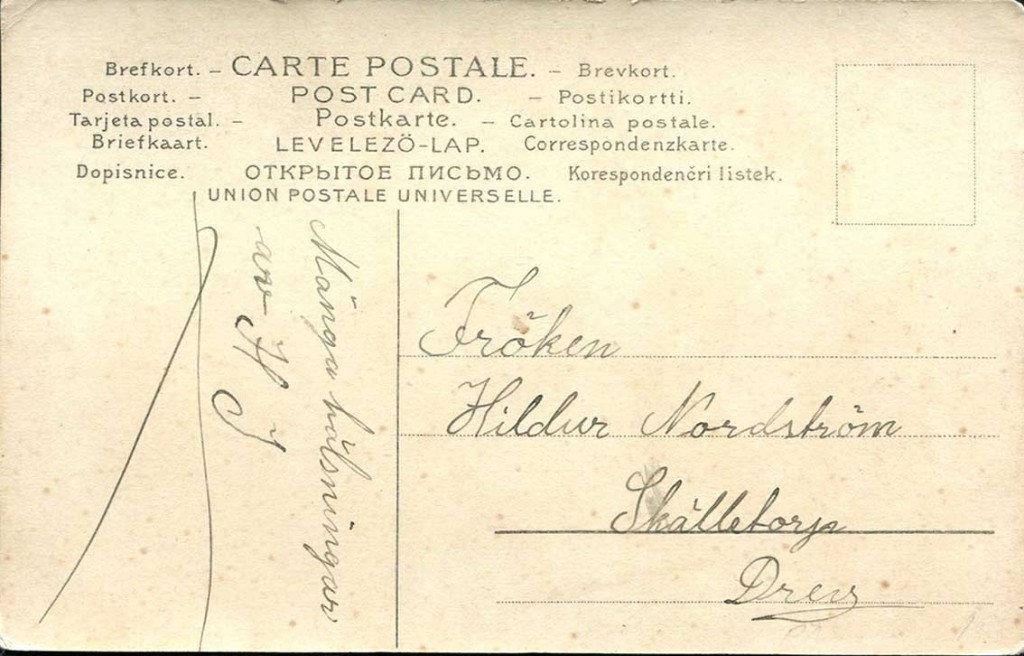 Brefkort. – CARTE POSTALE. – Brevkort.
Postkort. – POST CARD. – Postikortti.
Tarjeta postal. – Postkarte. – Cartolina postale.
Briefkaart. LEVELEZÖ-LAP. Correspondenzkarte.
Dopisnice. ОТКРЫТОЕ ПИСЬМО. Korespondenčri listek.
UNION POSTALE UNIVERSELLE.
Många hälsningar
av H J
Fröken
Hildur Nordström
Skälletorp
Drev